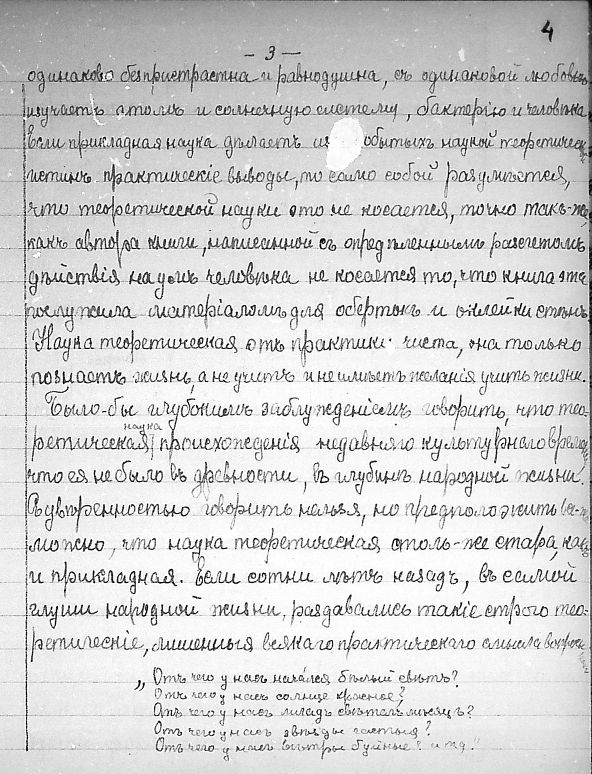 4
- 3 -
одинаково безпристрастна и равнодушна, съ одинаковой любовью
изучаетъ атомъ и солнечную систему, бактерію и человѣка.
Если прикладная наука дѣлаетъ из обытыхъ наукой теоретическ
истинъ практическіе выводы, то само собой разумѣется,
что теоретической науки это не касается, точно такъ-же,
какъ автора книги, написанной съ опредѣленнымъ разсчетомъ
дѣйствія на умъ человѣка не касается то, что книга эта
послужила матеріаломъ для обертокъ и оклейки стѣнъ.
Наука теоретическая отъ практики чиста, она только
познаетъ жизнь, а не учитъ и не имѣетъ желанія учить жизни.
Было-бы глубокимъ заблужденіемъ говорить, что тео-
ретическая наука происхожденія недавняго культурнаго времени,
что ея не было въ древности, въ глубинѣ народной жизни.
Съ увѣренностью говорить нельзя, но предположить воз-
можно, что наука теоретическая столь-же стара, какъ
и прикладная. Если сотни лѣтъ назадъ, въ самой
глуши народной жизни, раздавались такіе строго тео-
ретическіе, лишенныя всякаго практическаго смысла вопросы
„Отъ чего у насъ начался бѣлый свѣтъ?
Отъ чего у насъ солнце красное?
Отъ чего у насъ младъ свѣтелъ мѣсяцъ?
Отъ чего у насъ звѣзды частыя?
Отъ чего у насъ вѣтры буйные? и тд."